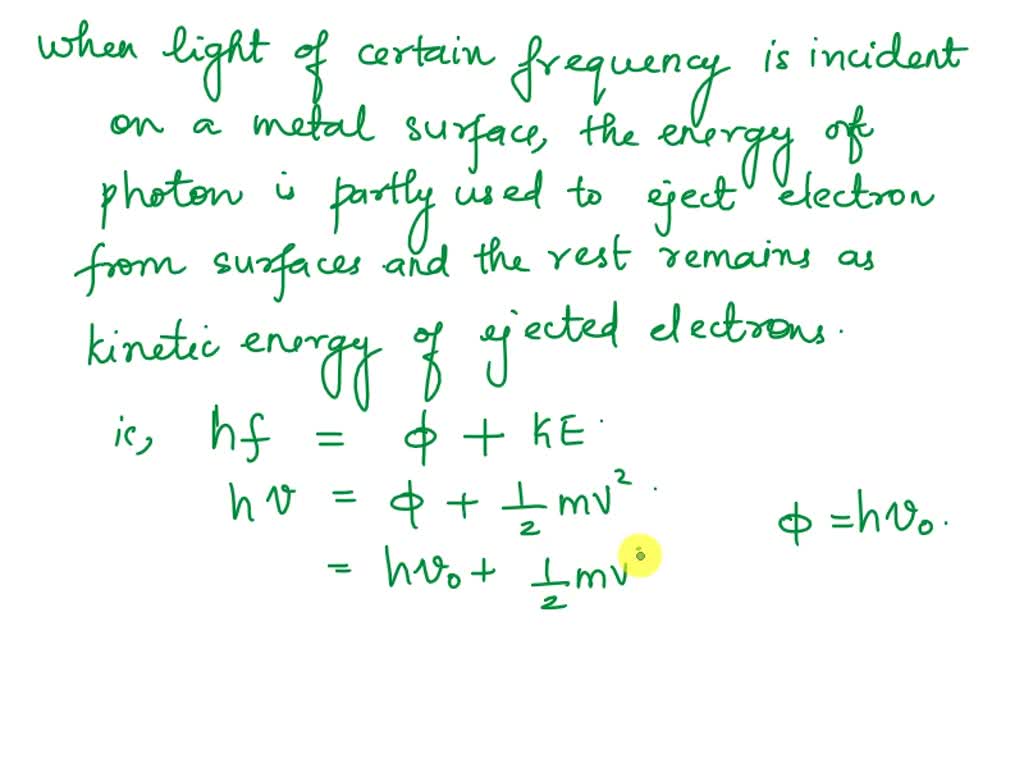 when light of certain frequency is incident
on a metal surface, the energy of
photon is partly used to eject electron
from surfaces and the rest remains as
kinetic energy of ejected electrons.
ie, hf = ϕ + KE.
hν = ϕ + 1/2 mv².
ϕ = hν₀.
= hν₀ + 1/2 mv